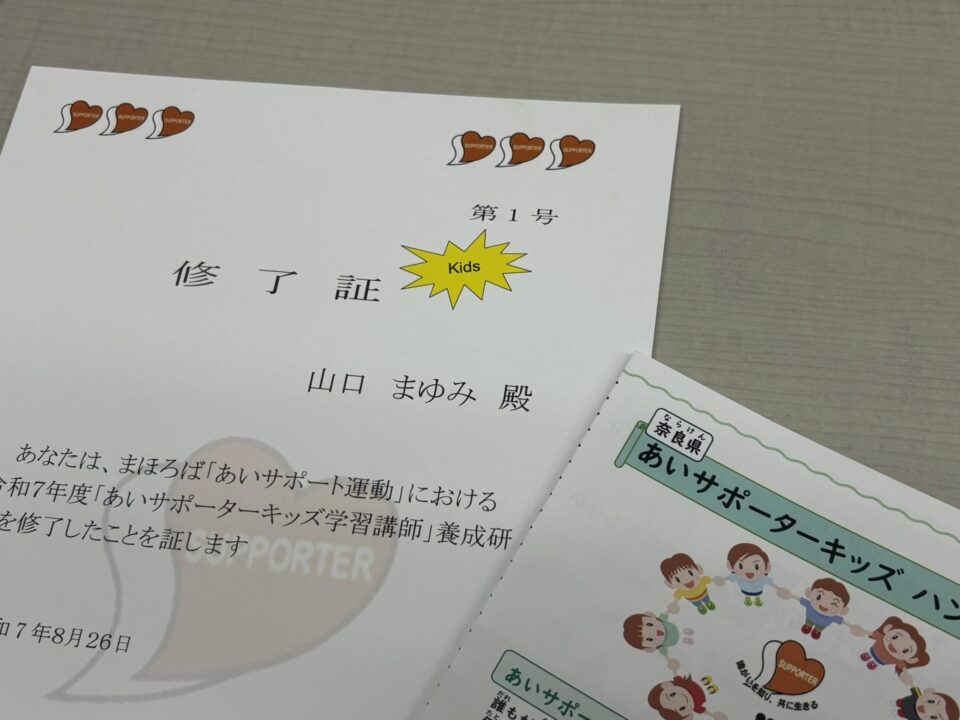 SUPPORTER SUPPORTER SUPPORTER
SUPPORTER SUPPORTER SUPPORTER
第1号
修了証
Kids
山口 まゆみ 殿
あなたは、まほろば「あいサポート運動」における
令和7年度「あいサポーターキッズ学習講師」養成研
を修了したことを証します
SUPPORTER
和7年8月26日
ならけん
奈良県
あいサポーターキッズ ハン
SUPPORTER
障がいを知り、共に生きる
あいサポー
だれ
誰も